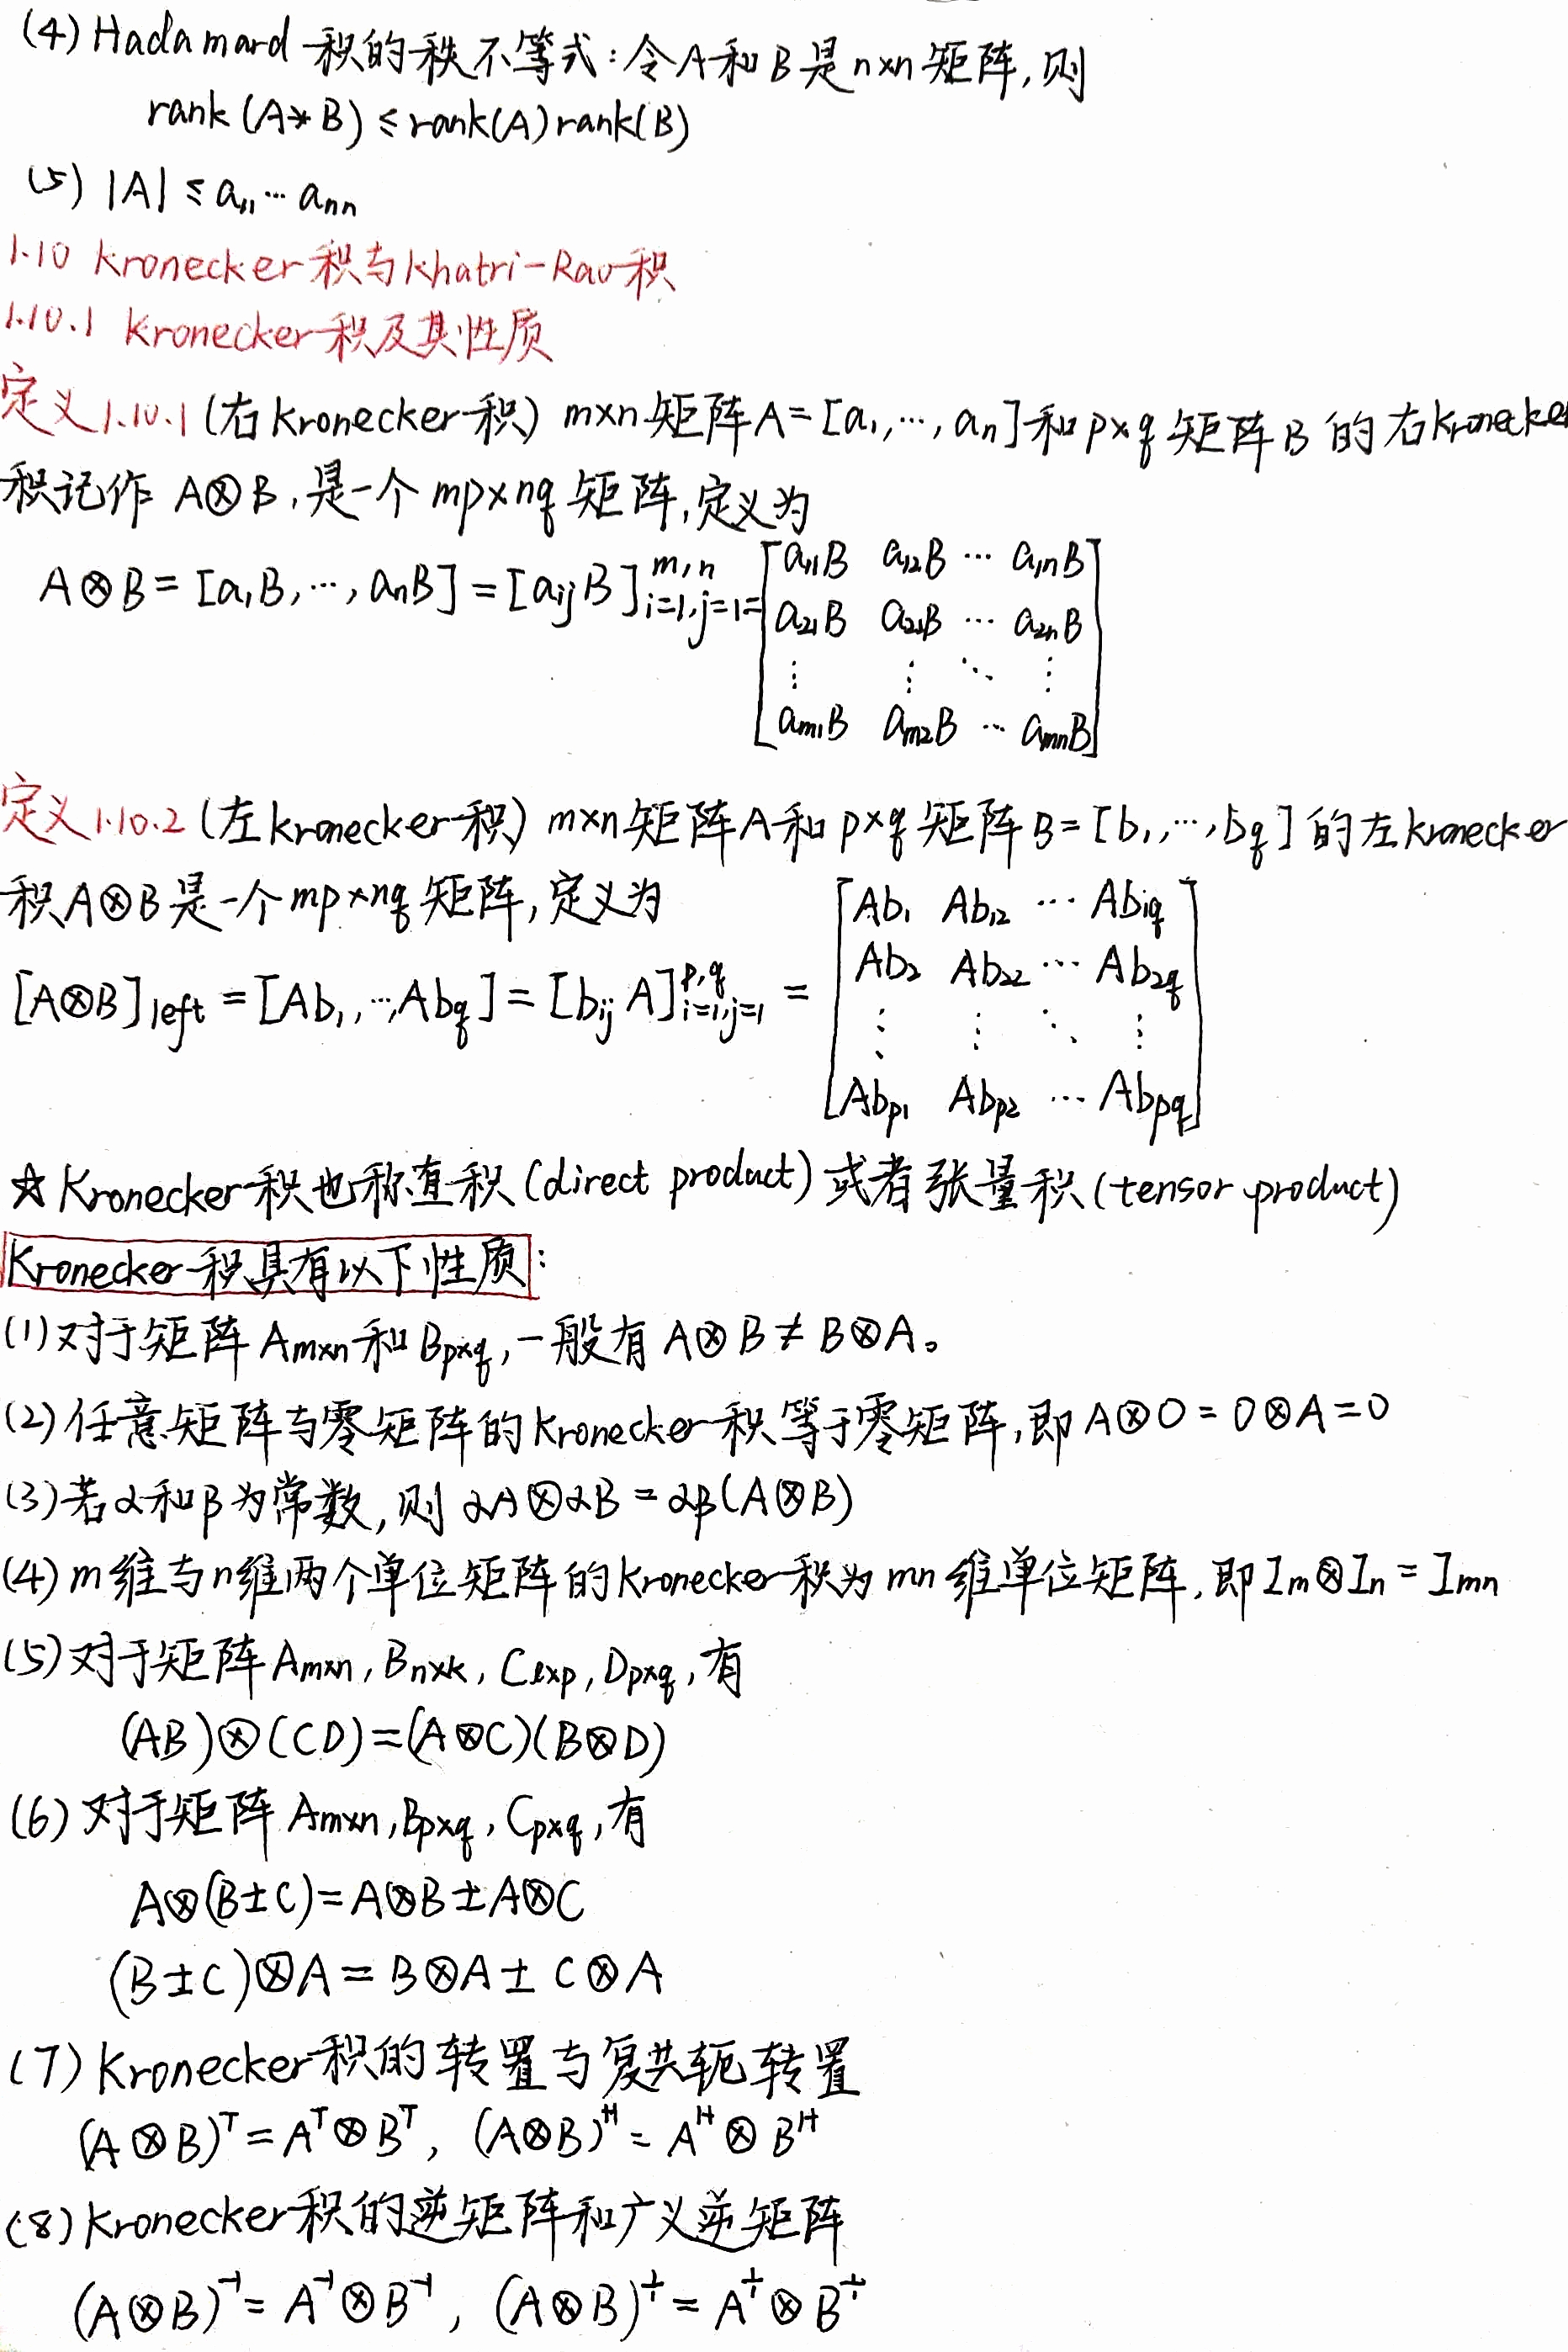 (4) Hadamard 积的秩不等式:令A和B是n×n矩阵,则
rank(A*B)≤rank(A)rank(B)
(5) |A|≤a₁₁…aₙₙ
1.10 Kronecker积与Khatri-Rao积
1.10.1 Kronecker积及其性质
定义1.10.1(右Kronecker积) m×n矩阵A=[a₁,…,aₙ]和p×q矩阵B的右Kronecker
积记作 A⊗B,是一个mp×nq矩阵,定义为
A⊗B=[a₁B,…,aₙB]=[a_{ij}B]_{i=1,j=1}^{m,n}=[a₁₁B a₁₂B … a_{1n}B
a₂₁B a₂₂B … a_{2n}B
⋮ ⋮ ⋱ ⋮
a_{m1}B a_{m2}B … a_{mn}B]
定义1.10.2(左Kronecker积) m×n矩阵A和p×q矩阵B=[b₁,…,b_q]的左Kronecker
积A⊗B是一个mp×nq矩阵,定义为
[A⊗B]_{left}=[Ab₁,…,Ab_q]=[b_{ij}A]_{i=1,j=1}^{p,q}=[Ab₁ Ab₁₂ … Ab_{1q}
Ab₂ Ab₂₂ … Ab_{2q}
⋮ ⋮ ⋱ ⋮
Ab_{p1} Ab_{p2} … Ab_{pq}]
☆Kronecker积也称直积(direct product)或者张量积(tensor product)
Kronecker积具有以下性质:
(1)对于矩阵A_{m×n}和B_{p×q},一般有A⊗B≠B⊗A。
(2)任意矩阵与零矩阵的Kronecker积等于零矩阵,即A⊗0=0⊗A=0
(3)若α和β为常数,则 αA⊗αB=αβ(A⊗B)
(4)m维与n维两个单位矩阵的Kronecker积为mn维单位矩阵,即I_m⊗I_n=I_{mn}
(5)对于矩阵A_{m×n},B_{n×k},C_{l×p},D_{p×q},有
(AB)⊗(CD)=(A⊗C)(B⊗D)
(6)对于矩阵A_{m×n},B_{p×q},C_{p×q},有
A⊗(B±C)=A⊗B±A⊗C
(B±C)⊗A=B⊗A±C⊗A
(7)Kronecker积的转置与复共轭转置
(A⊗B)ᵀ=Aᵀ⊗Bᵀ, (A⊗B)ᴴ=Aᴴ⊗Bᴴ
(8)Kronecker积的逆矩阵和广义逆矩阵
(A⊗B)⁻¹=A⁻¹⊗B⁻¹, (A⊗B)^†=A^†⊗B^†